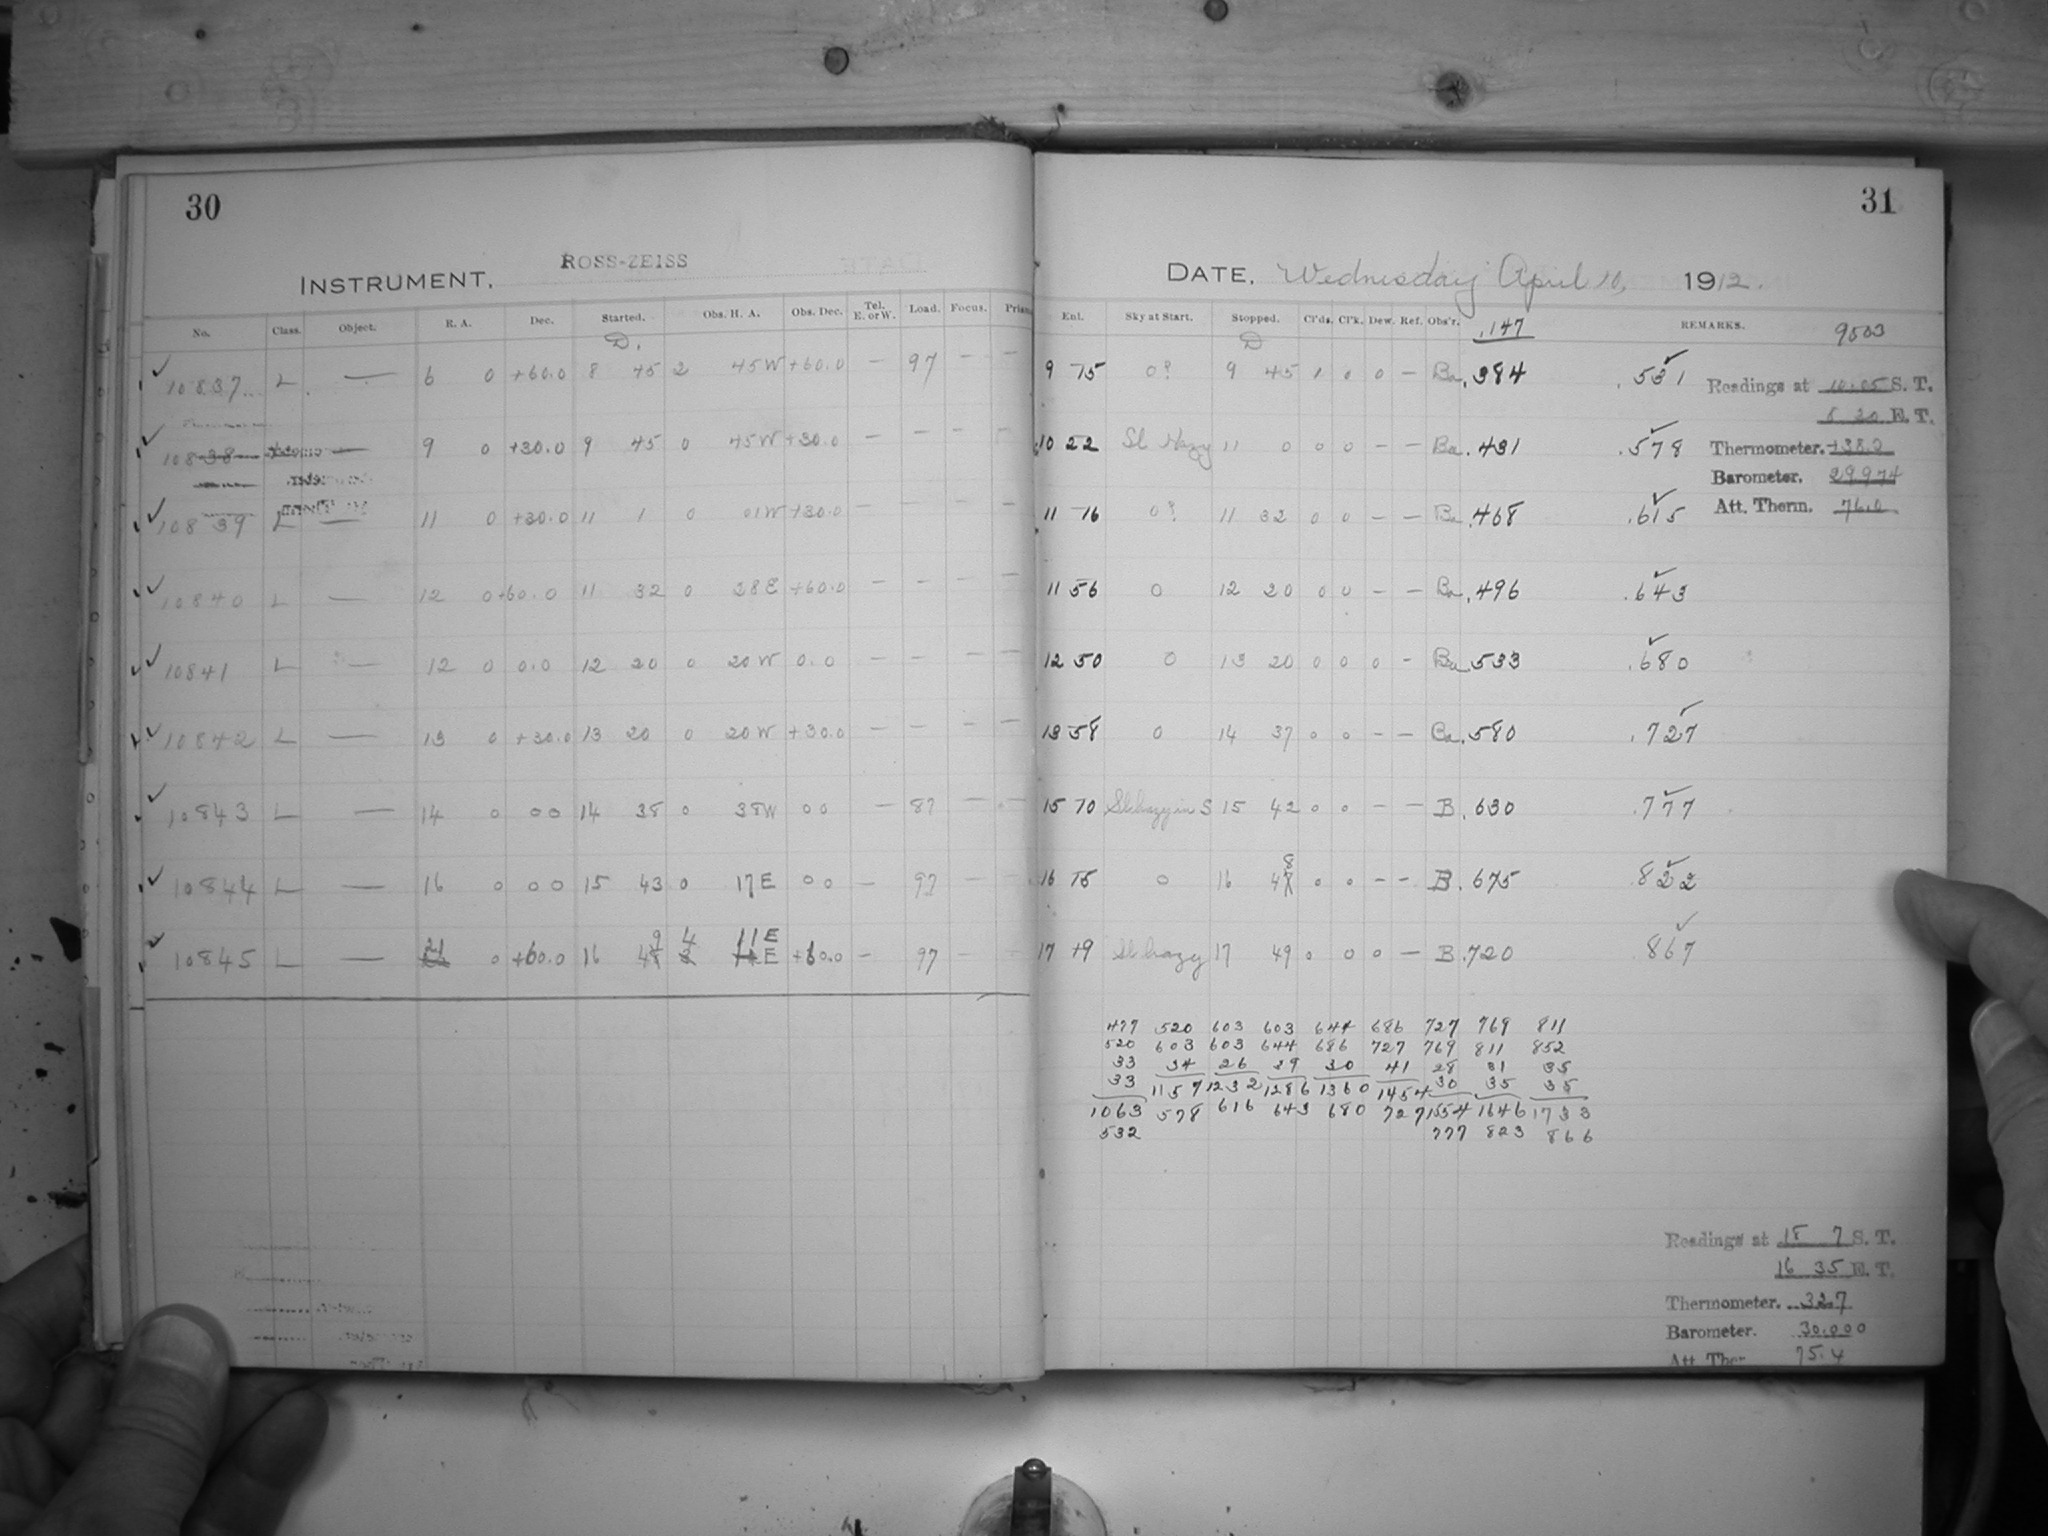 30
INSTRUMENT, ROSS-ZEISS
No. Class. Object. R. A. Dec. Started. Obs. H. A. Obs. Dec. Tel. E. or W. Load. Focus. Prism
D.
10837 L — 6 0 +60.0 8 45 2 45 W +60.0 — 97 — —
10838 — 9 0 +30.0 9 45 0 45 W +30.0 — — — —
10839 L — 11 0 +30.0 11 1 0 01 W +30.0 — — — —
10840 L — 12 0 +60.0 11 32 0 28 E +60.0 — — — —
10841 L — 12 0 0.0 12 20 0 20 W 0.0 — — — —
10842 L — 13 0 +30.0 13 20 0 20 W +30.0 — — — —
10843 L — 14 0 00 14 38 0 38 W 00 — 87 — —
10844 L — 16 0 00 15 43 0 17 E 00 — 97 — —
10845 L — 21 0 +60.0 16 49 4 11 E +60.0 — 97 — —
31
DATE, Wednesday April 10, 1912.
Enl. Sky at Start. Stopped. Cl'ds. Cl'k. Dew. Ref. Obs'r. .147 REMARKS. 9503
D
9 75 0? 9 45 1 0 0 — Ba .384 .531
10 22 Sl Hazy 11 0 0 0 — — Ba .431 .578
11 16 0? 11 32 0 0 — — Ba .468 .615
11 56 0 12 20 0 0 — — Ba .496 .643
12 50 0 13 20 0 0 0 — Ba .533 .680
13 58 0 14 37 0 0 — — Ba .580 .727
15 70 Sl hazy in S 15 42 0 0 — — B .630 .777
16 75 0 16 48 0 0 — — B .675 .822
17 79 Sl hazy 17 49 0 0 0 — B .720 .867
Readings at 10.05 S. T.
8 20 E. T.
Thermometer. +38.2
Barometer. 29.974
Att. Therm. 76.0
477 520 603 603 644 686 727 769 811
520 603 603 644 686 727 769 811 852
33 34 26 39 30 41 28 31 35
33 1157 1232 1286 1360 1454 30 35 35
1063 578 616 643 680 727 1554 1646 1733
532 777 823 866
Readings at 18 7 S. T.
16 35 E. T.
Thermometer. 32.7
Barometer. 30.000
Att. Ther 75.4